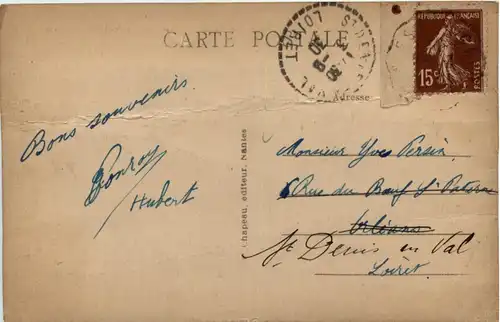 CARTE POSTALE
ST DENIS EN VAL
LOIRET
30
RÉPUBLIQUE FRANÇAISE
15c
POSTES
Adresse
Bons souvenirs.
Hubert
Chapeau, editeur, Nantes
Monsieur Yves Persin
6 Rue du Bœuf St Paterne
Orléans
St Denis en Val
Loiret